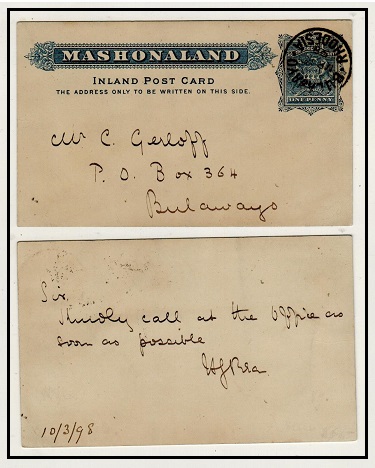 MASHONALAND
INLAND POST CARD
THE ADDRESS ONLY TO BE WRITTEN ON THIS SIDE.
ONE PENNY
RHODESIA
Mr C. Gerloff
P. O. Box 364
Bulawayo
Sir,
Kindly call at the Office as
soon as possible
10/3/98